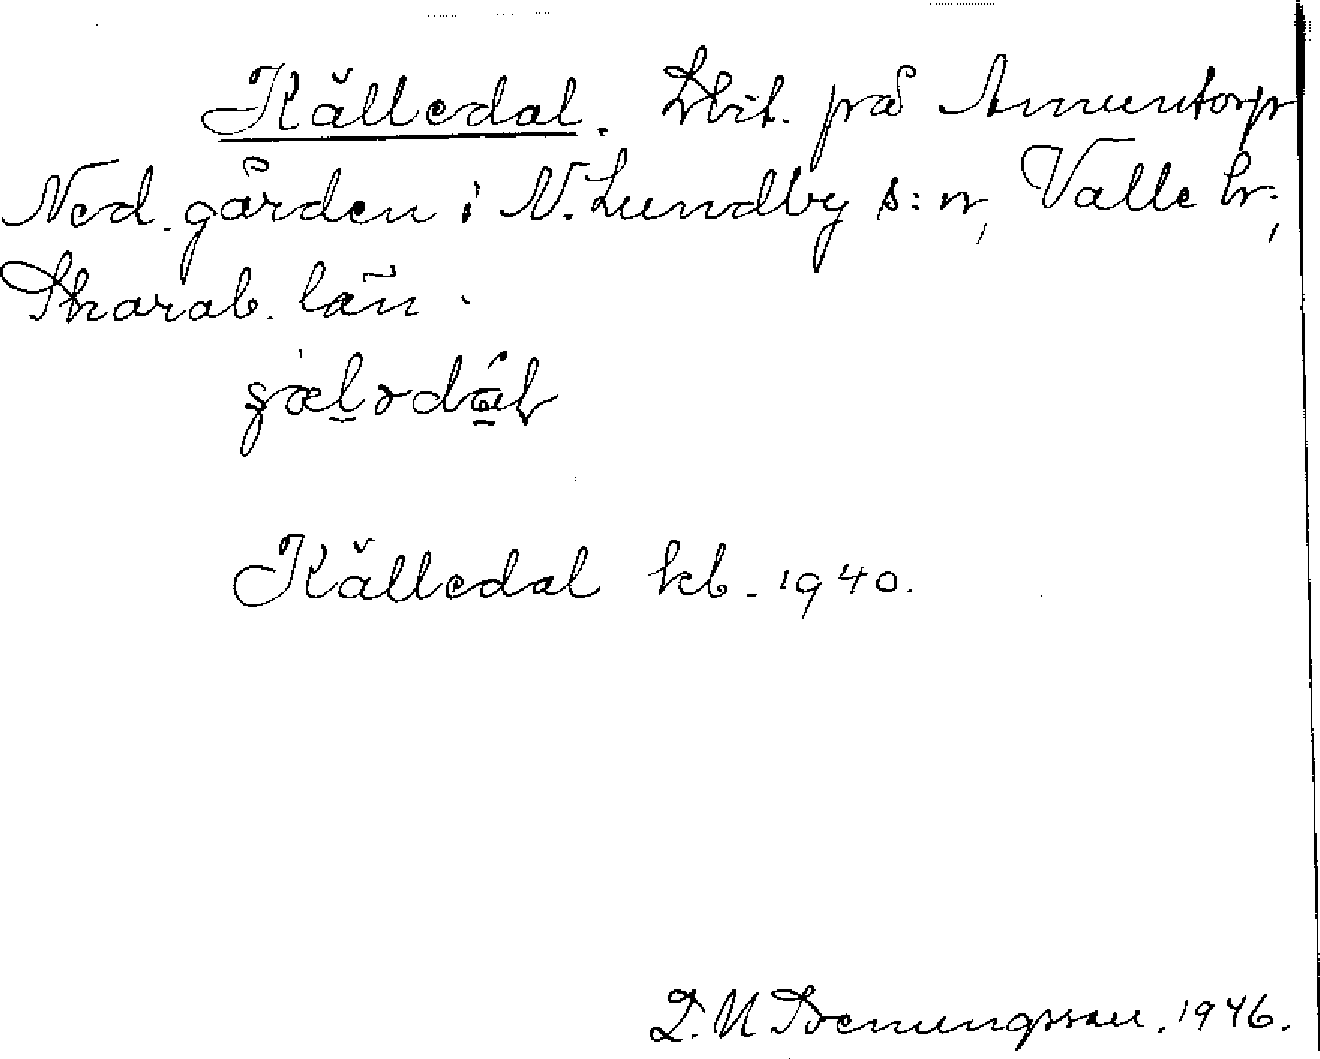 Källedal. Lht. på Amuntorp
Ned. gården i N. Lundby s:n, Valle hr,
Skarab. län.
Källedal kb. 1940.
D. N. Benningsson. 1946.